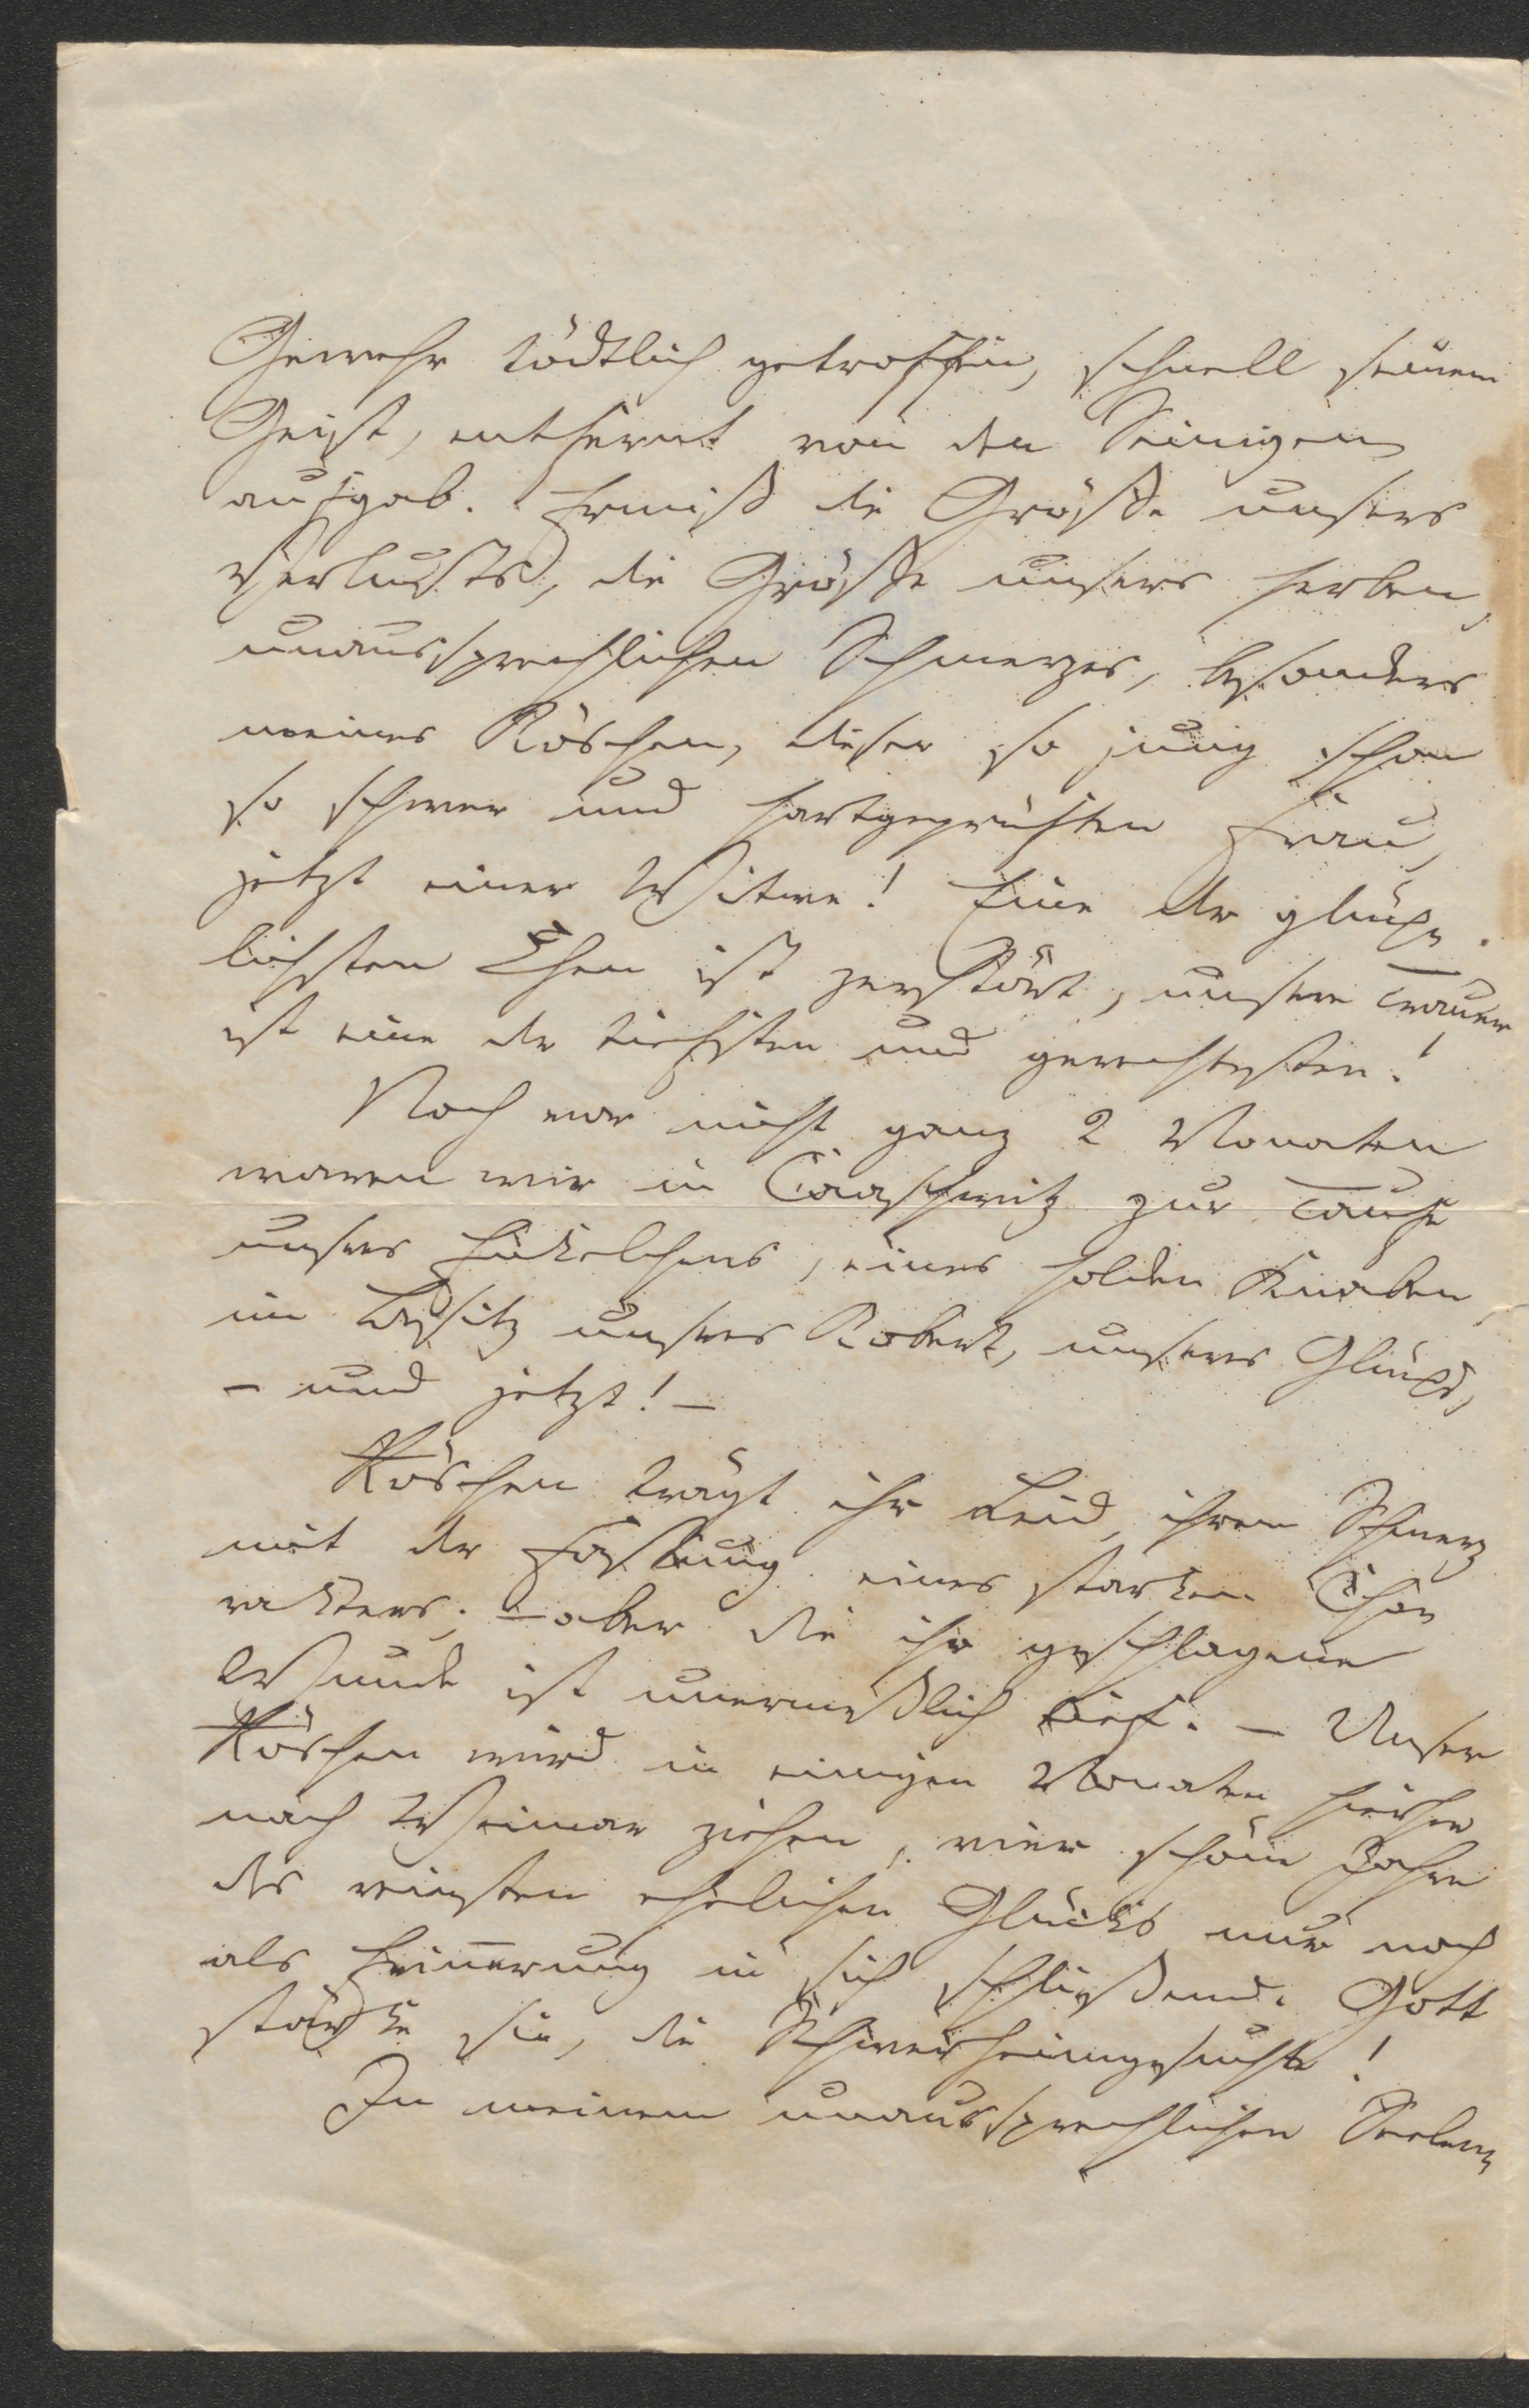 Gewehr tödtlich getroffen, schnell seinen
Geist, entfernt von den Seinigen
aufgab. Ermiß die Größe unsers
Verlusts, die Größe unsers herben,
unaussprechlichen Schmerzes, besonders
meines Röschen, dieser so jung schon
so schwer und hartgeprüften Frau,
jetzt einer Witwe! Eine der glück-
lichsten Ehen ist zerstört, unsere Trauer
ist eine der tiefsten und gerechtesten!
Noch vor nicht ganz 2 Monaten
waren wir in Caaschwitz zur Taufe
unsers Enkelchens, eines holden Knaben,
im Besitz unsers Robert, unseres Glücks,
– und jetzt! –
Röschen trägt ihr Leid, ihren Schmerz
mit der Fassung eines starken Cha-
rakters; – aber die ihr geschlagene
Wunde ist unermeßlich tief. – Unser
Röschen wird in einigen Monaten hierher
nach Weimar ziehen, vier schöne Jahre
des reinsten ehelichen Glücks nur noch
als Erinnerung in sich schließend. Gott
stärke sie, die Schwerheimgesuchte!
In meinem unaussprechlichen Seelen-